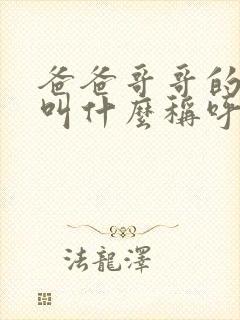 爸爸哥哥的
叫什麼稱呼
法龍澤